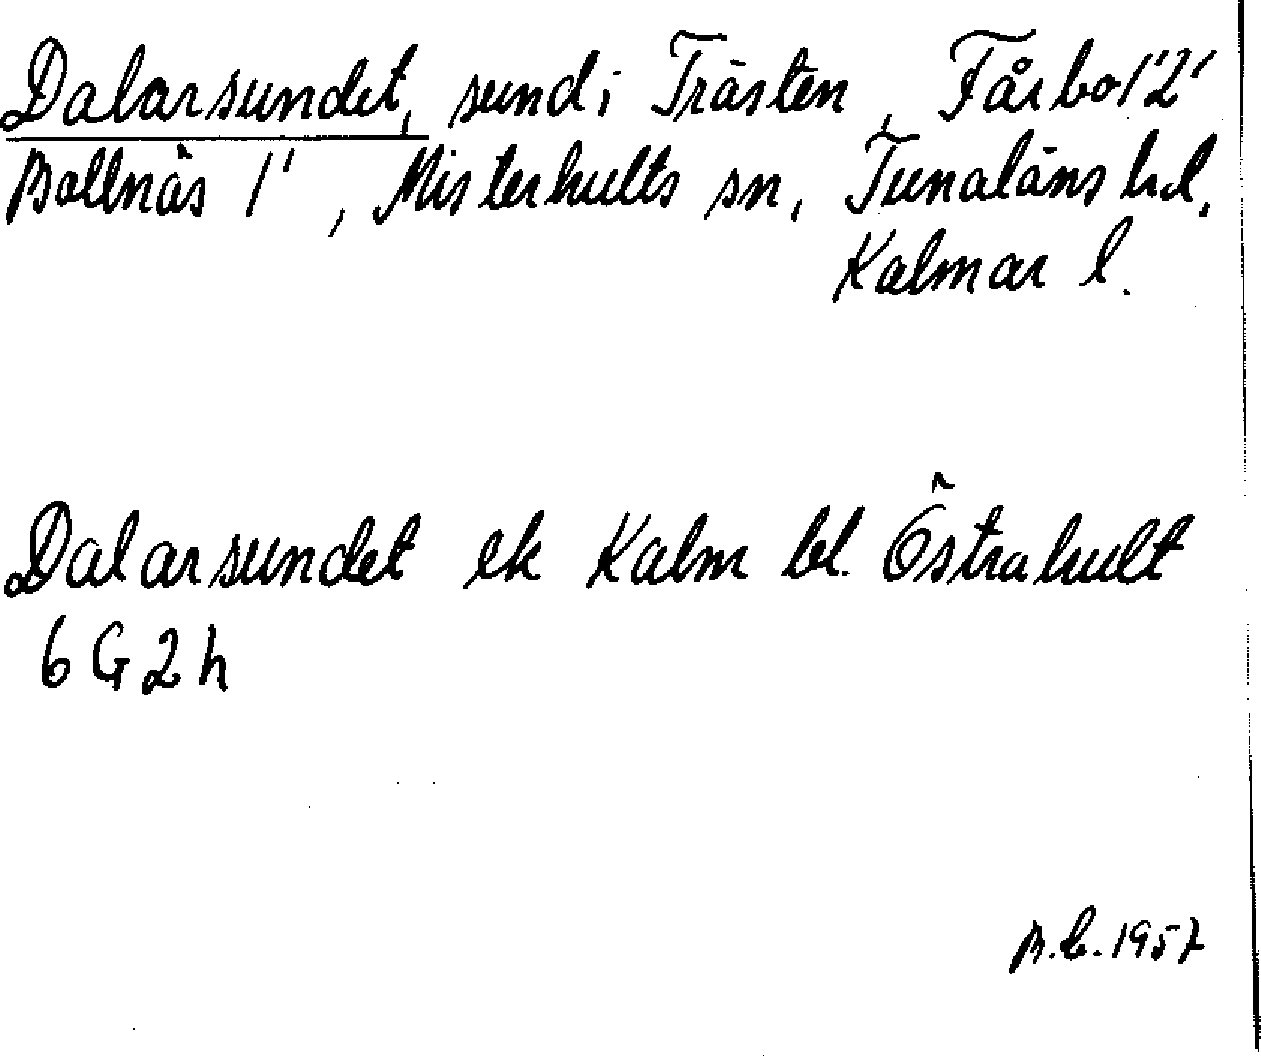 Dalarsundet, sund i Trästen, Fårbo 1'2'
Bollnäs 1', Misterhults sn, Tunaläns hd,
Kalmar l.
Dalarsundet ek Kalm bl. Östrahult
6G2h
B.C. 1957